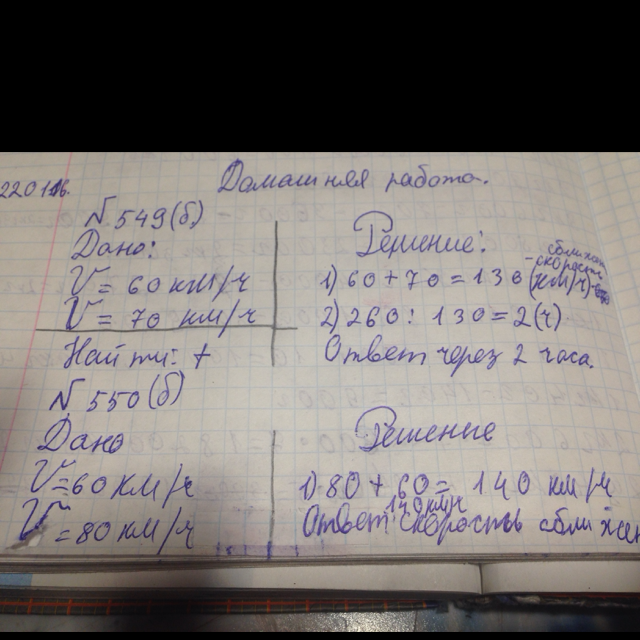 220116. Домашняя работа.
N 549(б)
Дано:
V = 60 км/ч
V = 70 км/ч
Найти: t
Решение:
1) 60 + 70 = 130 (км/ч) - скорость сближен
2) 260 : 130 = 2 (ч)
Ответ через 2 часа.
N 550(б)
Дано
V = 60 км/ч
V = 80 км/ч
Решение
1) 80 + 60 = 140 км/ч
140 км/ч
Ответ скорость сближен